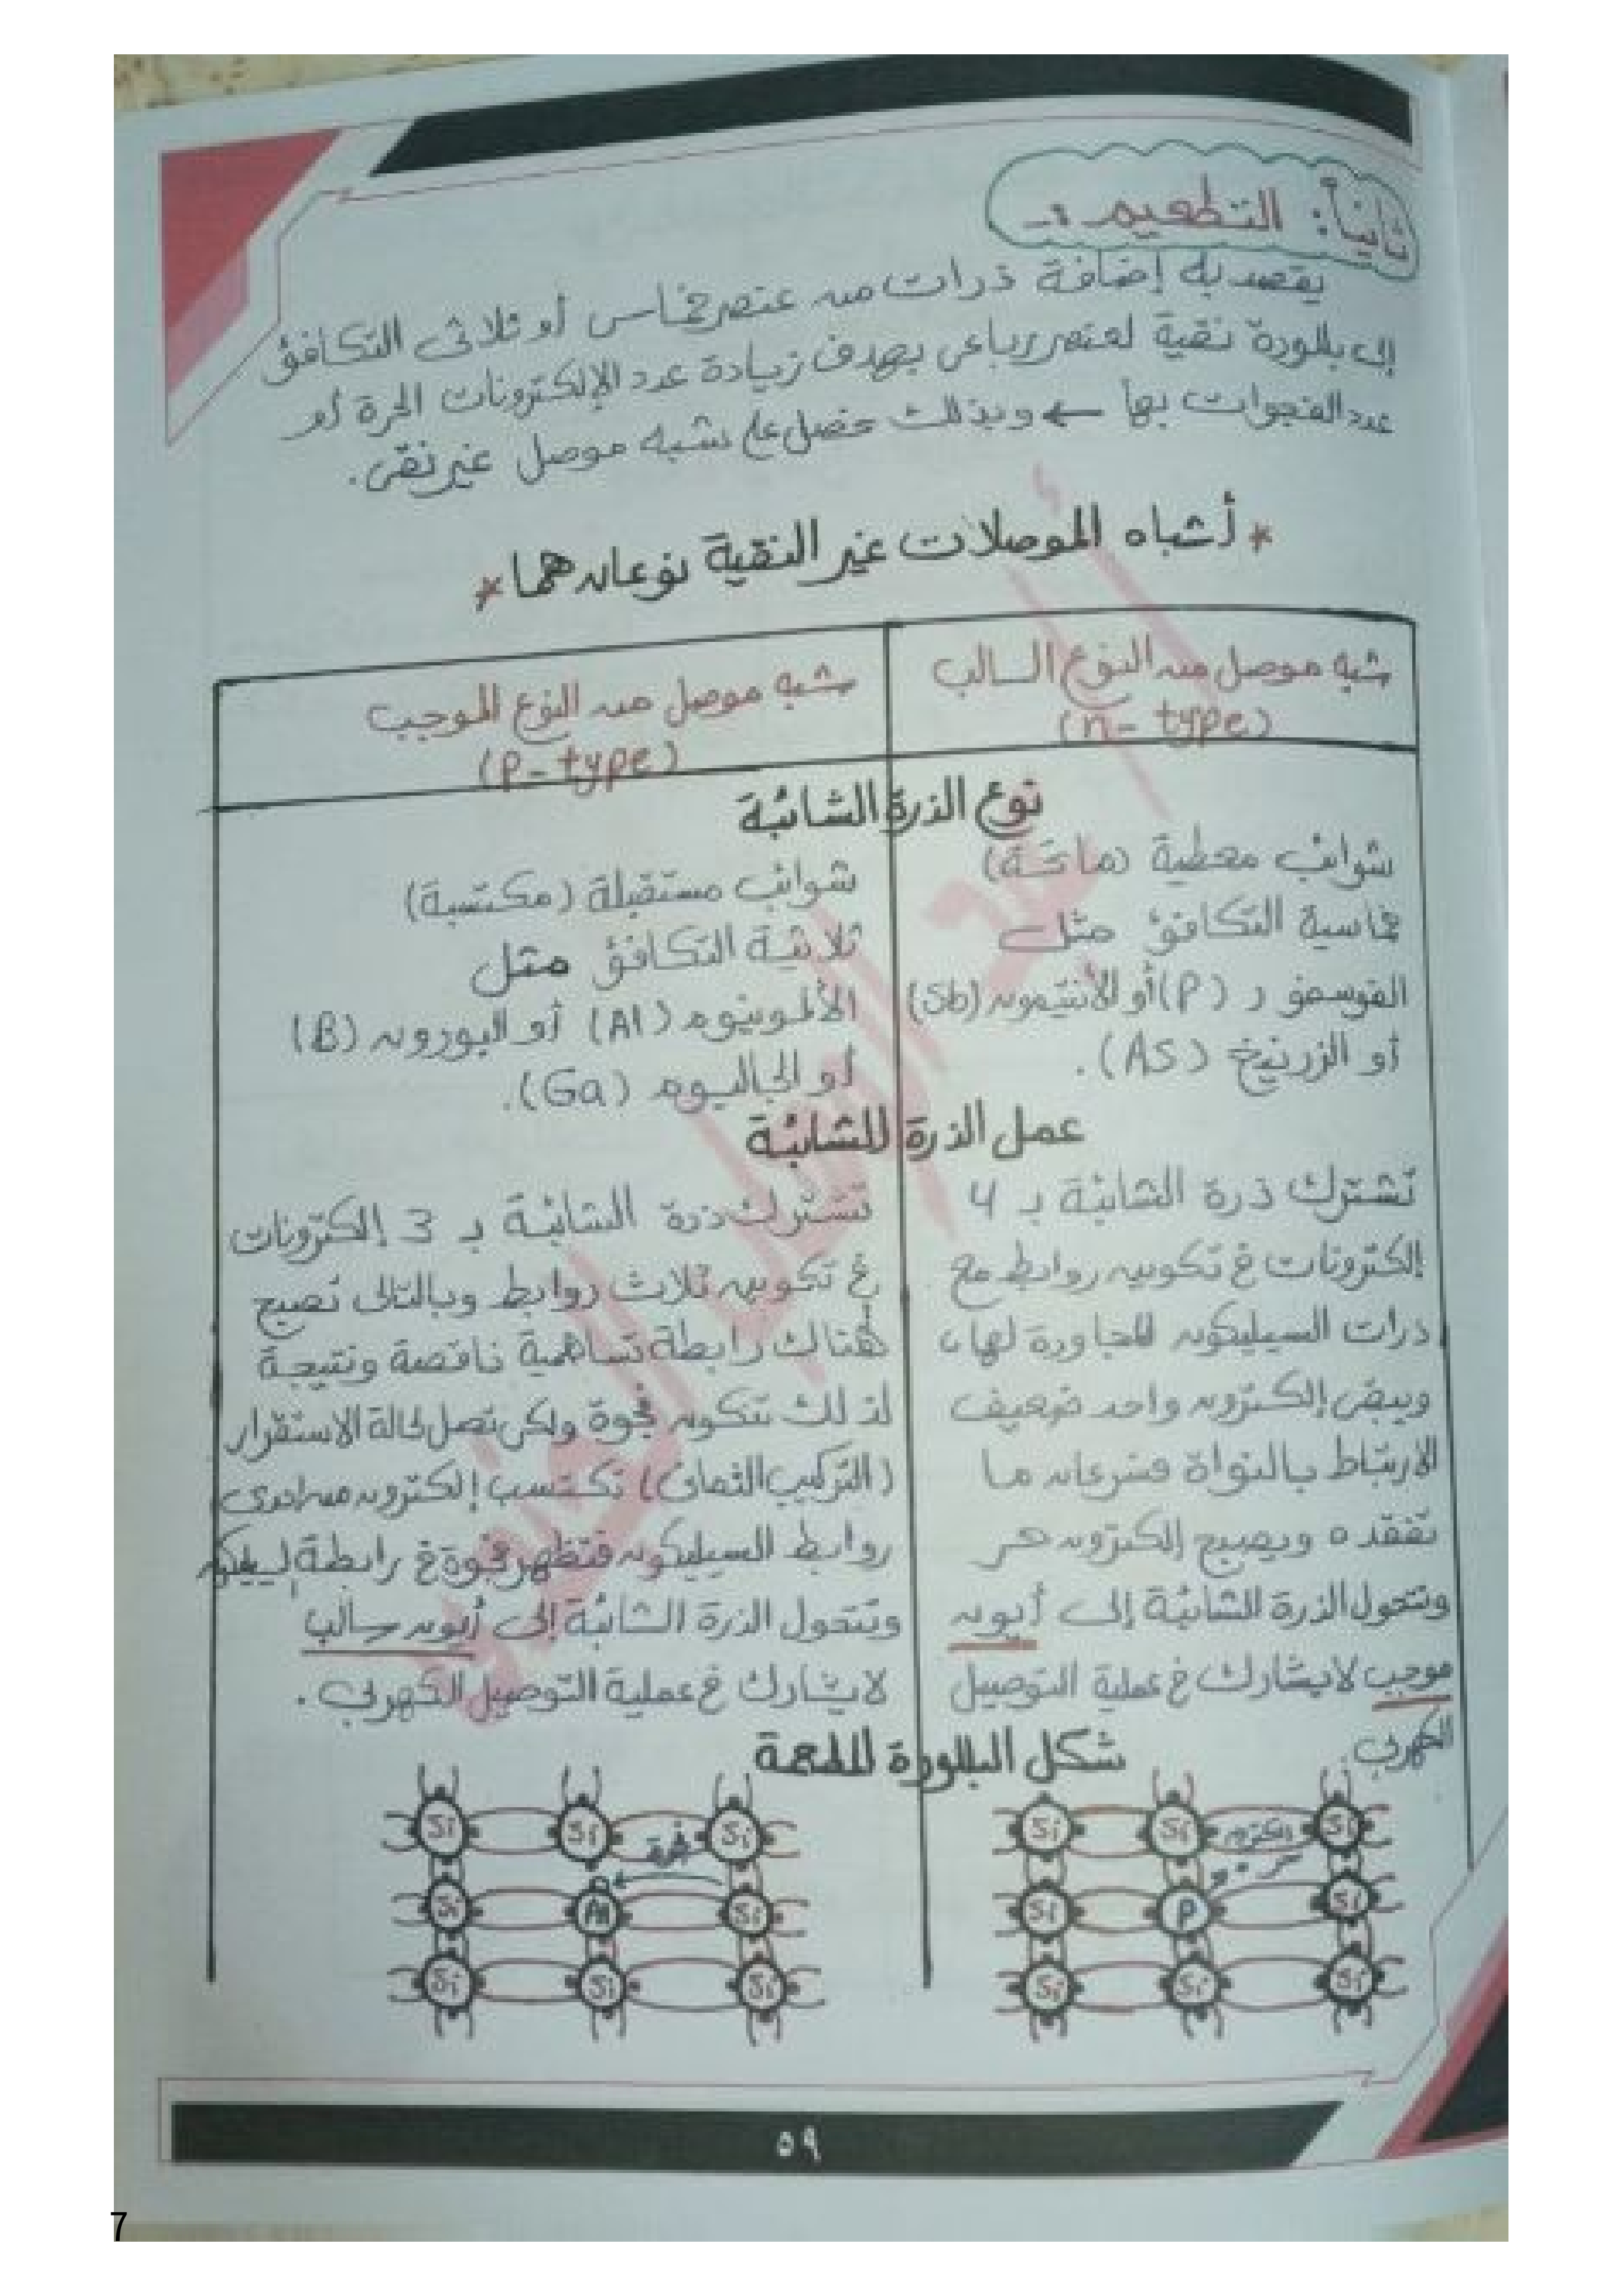 ثانياً: التطعيم :-
يقصد به إضافة ذرات من عنصر خماسى أو ثلاثى التكافؤ
إلى بللورة نقية لعنصر رباعى بهدف زيادة عدد الإلكترونات الحرة أو
عدد الفجوات بها ← وبذلك نحصل على شبه موصل غير نقى.
* أشباه الموصلات غير النقية نوعان هما *
شبه موصل من النوع السالب
(n- type)
شبه موصل من النوع الموجب
(P- type)
نوع الذرة الشائبة
شوائب معطية (مانحة)
خماسية التكافؤ مثل
الفوسفور (P) أو الأنتيمون (Sb)
أو الزرنيخ (As).
شوائب مستقبلة (مكتسبة)
ثلاثية التكافؤ مثل
الألومنيوم (Al) أو البورون (B)
أو الجاليوم (Ga).
عمل الذرة الشائبة
تشترك ذرة الشائبة بـ 4
إلكترونات فى تكوين روابط مع
ذرات السيليكون المجاورة لها،
ويبقى إلكترون واحد ضعيف
الارتباط بالنواة فسرعان ما
تفقده ويصبح إلكترون حر
وتتحول الذرة الشائبة إلى أيون
موجب لايشارك فى عملية التوصيل
الكهربى.
تشترك ذرة الشائبة بـ 3 إلكترونات
فى تكوين ثلاث روابط وبالتالى تصبح
هناك رابطة تساهمية ناقصة ونتيجة
لذلك تتكون فجوة ولكى تصل لحالة الاستقرار
(التركيب الثمانى) تكتسب إلكترون من احدى
روابط السيليكون فتظهر فجوة فى رابطة السيليكون
وتتحول الذرة الشائبة إلى أيون سالب
لايشارك فى عملية التوصيل الكهربى.
شكل البللورة المطعمة
Si Si إلكترون حر Si
Si P Si
Si Si Si
Si Si فجوة Si
Si Al Si
Si Si Si
٥٩
7